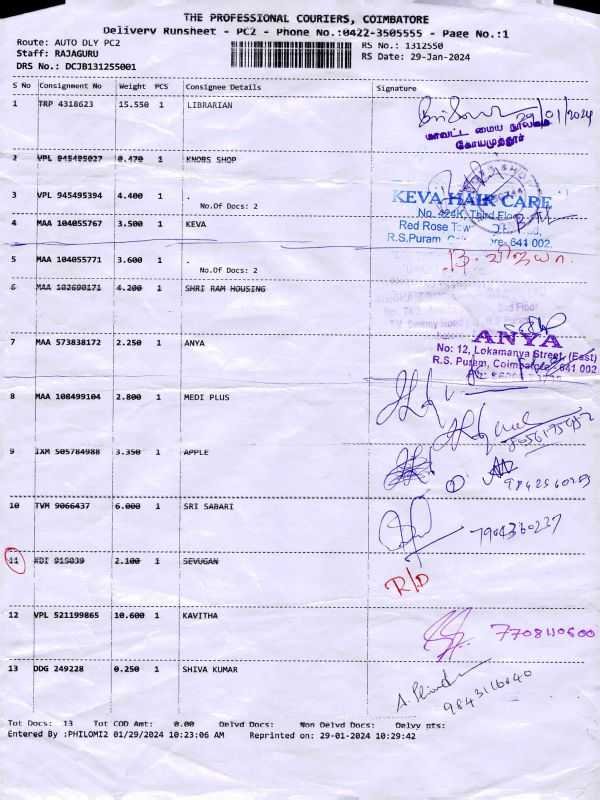 THE PROFESSIONAL COURIERS, COIMBATORE
Delivery Runsheet - PC2 - Phone No.:0422-3505555 - Page No.:1
Route: AUTO DLY PC2
RS No.: 1312550
Staff: RAJAGURU
RS Date: 29-Jan-2024
DRS No.: DCJB131255001
S No Consignment No Weight PCS Consignee Details Signature
1 TRP 4318623 15.550 1 LIBRARIAN
29/01/2024
மாவட்ட மைய நூலகம்
கோயமுத்தூர்
2 VPL 945495027 0.470 1 KNOBS SHOP
3 VPL 945495394 4.400 1 .
No.Of Docs: 2
KEVA HAIR CARE
No. 424K, Third Floor
4 MAA 104055767 3.500 1 KEVA
Red Rose Tow
R.S.Puram, 641 002.
5 MAA 104055771 3.600 1 .
No.Of Docs: 2
6 MAA 102690171 4.200 1 SHRI RAM HOUSING
2nd Floor
T.V. Swamy Road
7 MAA 573838172 2.250 1 ANYA
ANYA
No: 12, Lokamanya Street, (East)
R.S. Puram, Coimbatore - 641 002
8 MAA 108499104 2.800 1 MEDI PLUS
9 IXM 505784988 3.350 1 APPLE
10 TVM 9066437 6.000 1 SRI SABARI
7904360237
11 KDI 915039 2.100 1 SEVUGAN
R/D
12 VPL 521199865 10.600 1 KAVITHA
7708110600
13 DDG 249228 0.250 1 SHIVA KUMAR
9843116040
Tot Docs: 13 Tot COD Amt: 0.00 Delvd Docs: Non Delvd Docs: Delvy pts:
Entered By :PHILOMI2 01/29/2024 10:23:06 AM Reprinted on: 29-01-2024 10:29:42